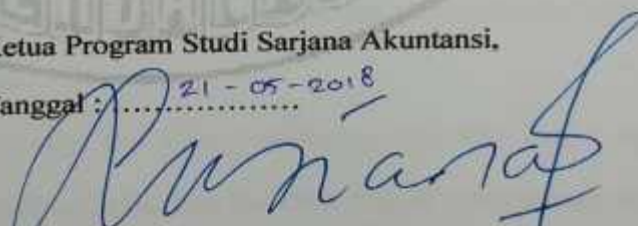 etua Program Studi Sarjana Akuntansi,
anggal : ......21 - 05 - 2018......